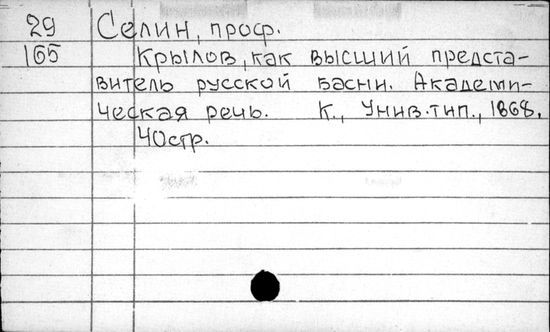 29 Селин, проф.
165 Крылов, как высший предста-
витель русской басни. Академи-
ческая речь. К., Унив. тип., 1868.
40 стр.